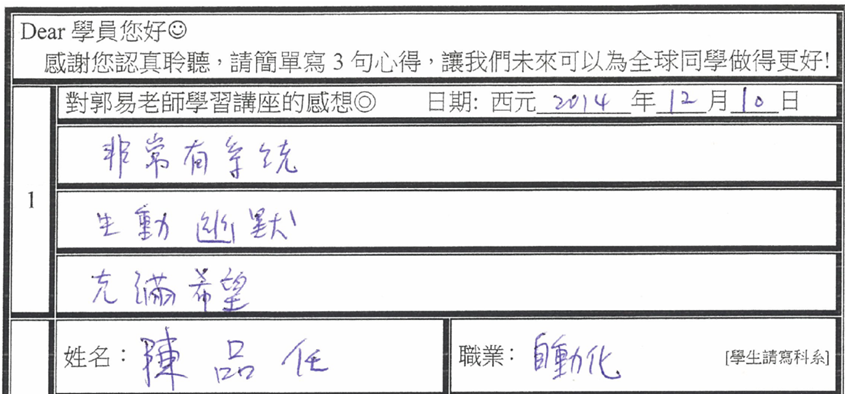 Dear 學員您好☺
感謝您認真聆聽，請簡單寫 3 句心得，讓我們未來可以為全球同學做得更好!
1
對郭易老師學習講座的感想◎ 日期: 西元 2014 年 12 月 10 日
非常有系統
生動幽默
充滿希望
姓名：陳品任 職業：自動化 [學生請寫科系]